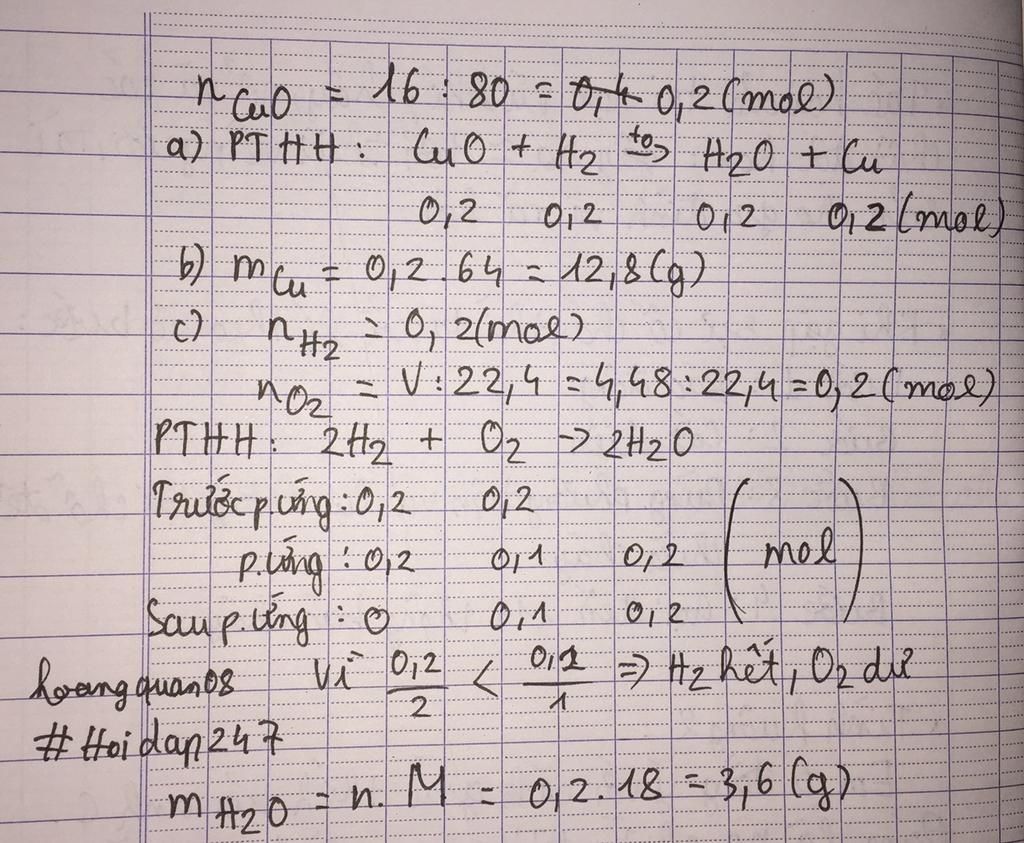 n CuO = 16 : 80 = 0,4 0,2 (mol)
a) PTHH : CuO + H2 to→ H2O + Cu
0,2 0,2 0,2 0,2 (mol)
b) mCu = 0,2 . 64 = 12,8 (g)
c) nH2 = 0,2 (mol)
nO2 = V : 22,4 = 4,48 : 22,4 = 0,2 (mol)
PTHH: 2H2 + O2 → 2H2O
Trước p.ứng : 0,2 0,2
p.ứng : 0,2 0,1 0,2 (mol)
Sau p.ứng : 0 0,1 0,2
hoangquan08 Vì 0,2/2 < 0,2/1 => H2 hết, O2 dư
#Hoidap247
mH2O = n. M = 0,2. 18 = 3,6 (g)